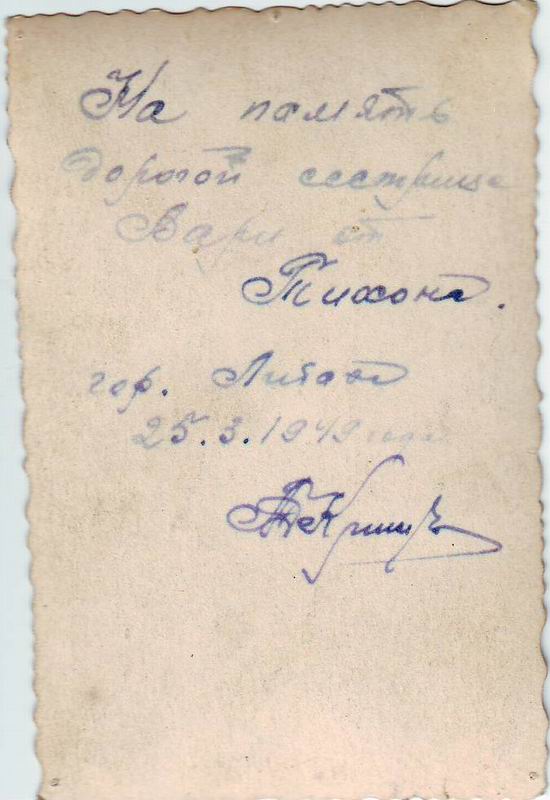 На память
дорогой сестрице
Вари от
Тихона.
гор. Либава
25.3.1949 года